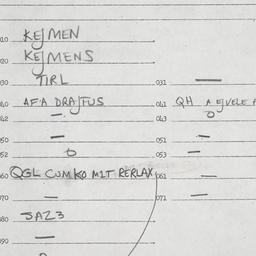 010 KEJMEN
020 KEJMENS
030 TIRL 031 —
040 AFA DRAJTUS 041 QH A EJVELE
042 — 043 O
050 — 051 —
052 O 053 —
060 QGL CUMKO MIT RERLAX 061
070 — 071 —
080 JAZ3
090 —